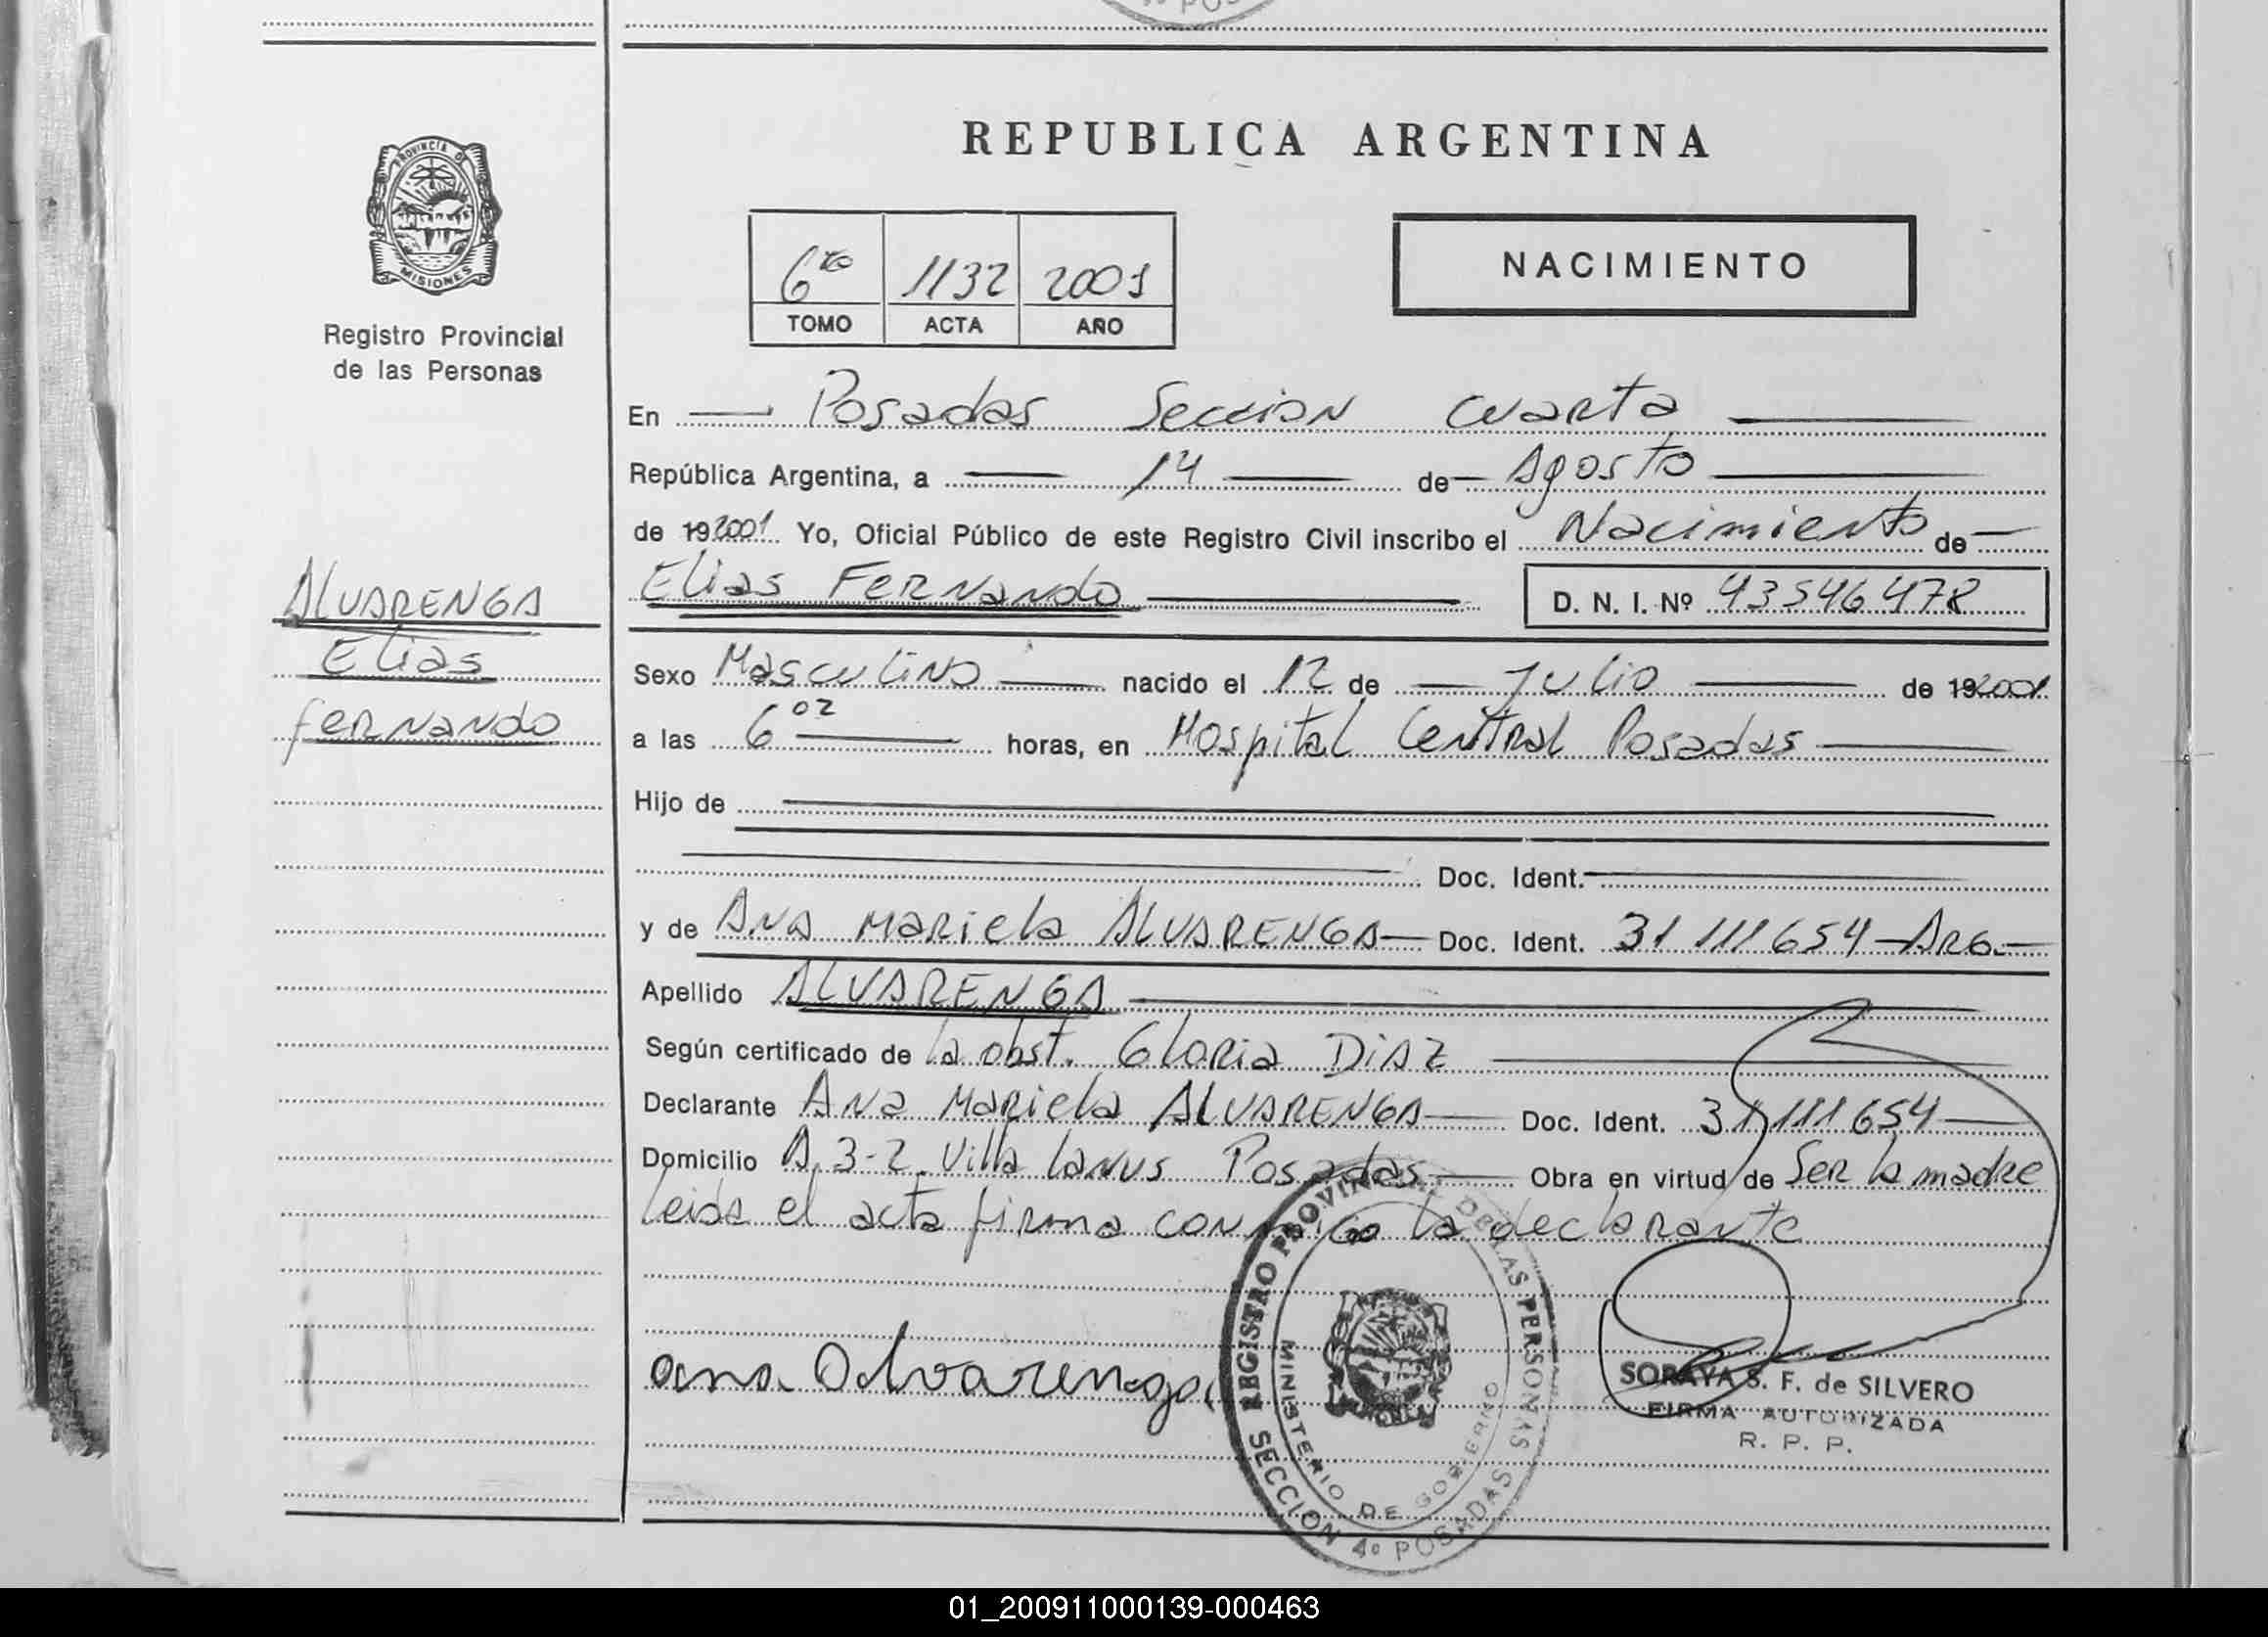 REPUBLICA ARGENTINA
PROVINCIA DE MISIONES
Registro Provincial
de las Personas
6to 1132 2001
TOMO ACTA AÑO
NACIMIENTO
En Posadas Seccion Cuarta
República Argentina, a 14 de Agosto
de 19 2001 Yo, Oficial Público de este Registro Civil inscribo el Nacimiento de
Elias Fernando D. N. I. Nº 43546478
ALVARENGA
Elias
Fernando
Sexo Masculino nacido el 12 de Julio de 19 2001
a las 6 02 horas, en Hospital Central Posadas
Hijo de
Doc. Ident.
y de Ana Mariela ALVARENGA Doc. Ident. 31 111 654 - ARG.
Apellido ALVARENGA
Según certificado de la obst. Gloria DIAZ
Declarante Ana Mariela ALVARENGA Doc. Ident. 31 111 654
Domicilio A 3-2 Villa Lanus Posadas Obra en virtud de Ser la madre
leida el acta firma conmigo la declarante
ana Alvarenga
REGISTRO PROVINCIAL DE LAS PERSONAS
MINISTERIO DE GOBIERNO
SECCION 4º POSADAS
SORAYA S. F. de SILVERO
FIRMA AUTORIZADA
R. P. P.
01_200911000139-000463